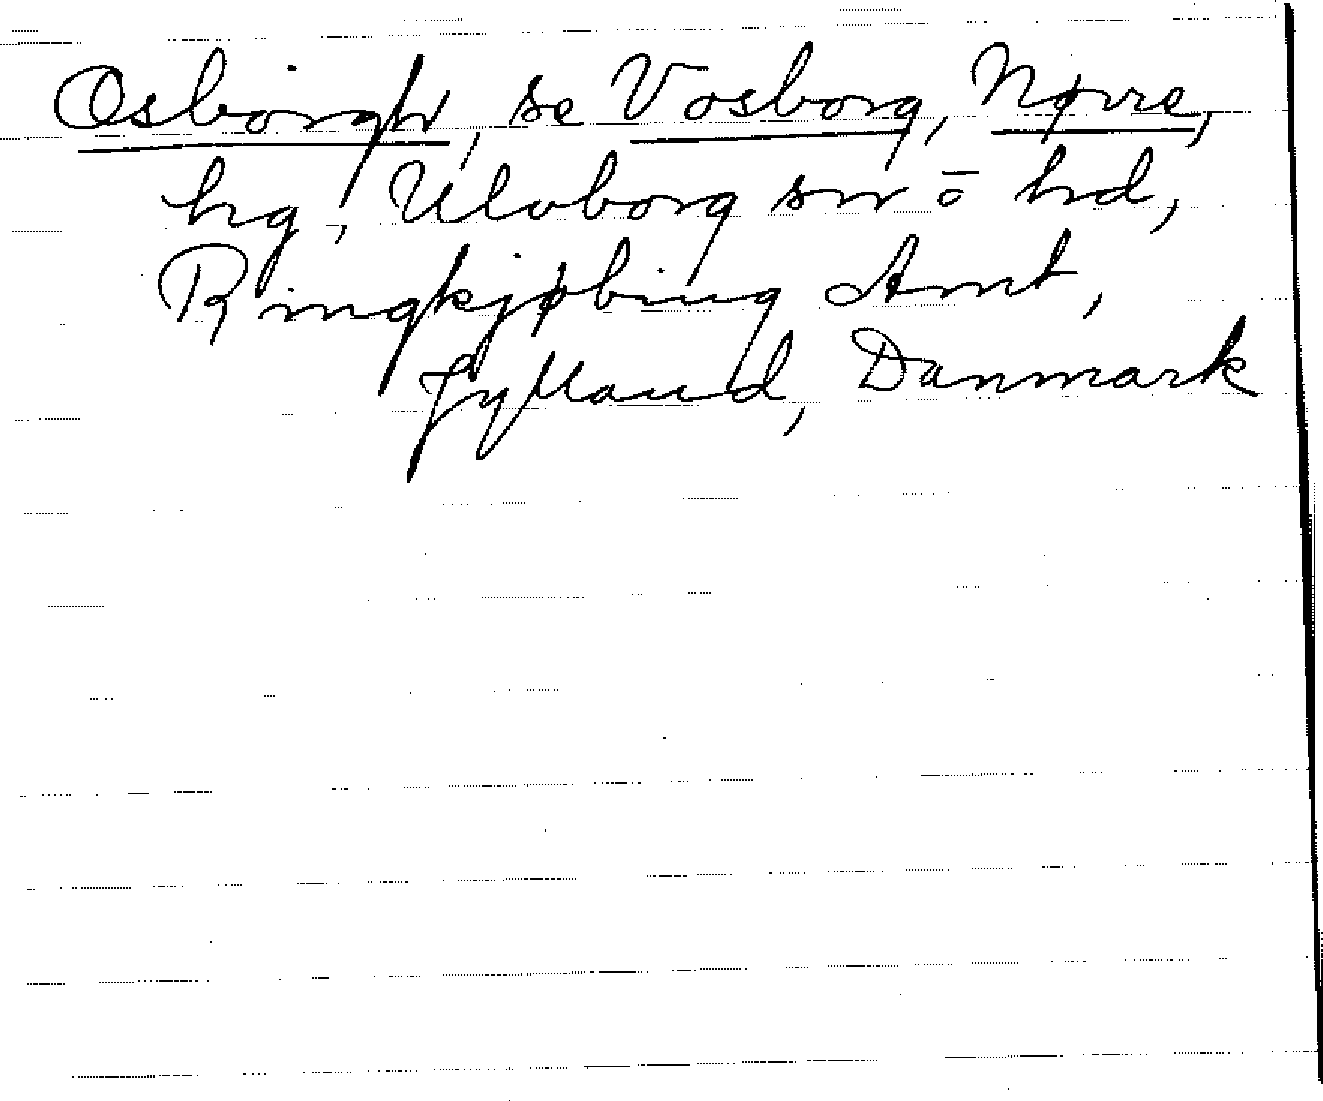 Osborgh, se Vosborg, Nørre,
hg, Ulvborg sn ō hd,
Ringkjøbing Amt,
Jylland, Danmark